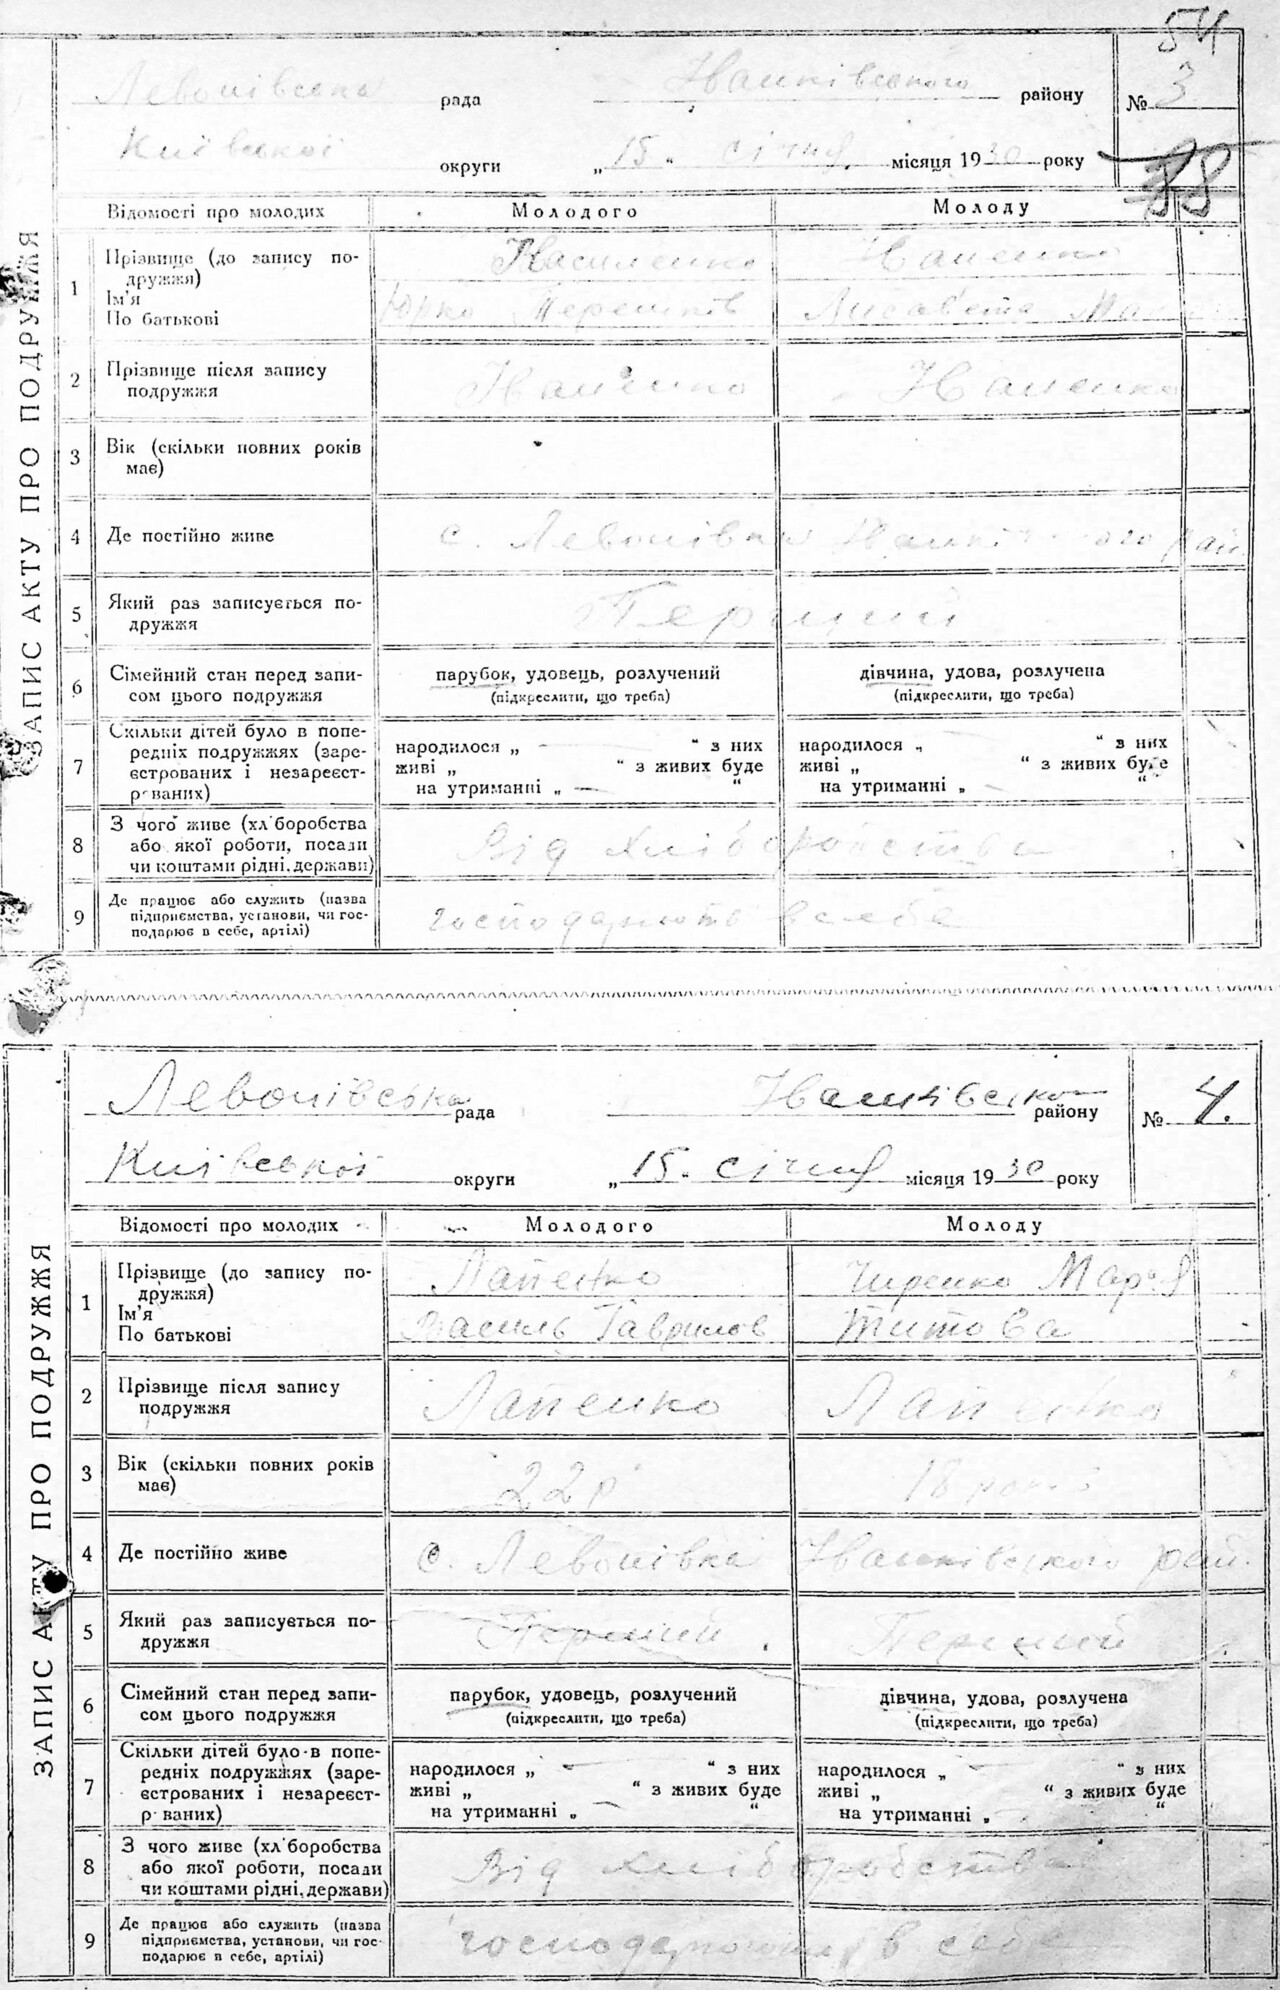 54
Левонівська рада Іванківського району № 3
Київської округи „ 15 " січня місяця 1930 року
88
ЗАПИС АКТУ ПРО ПОДРУЖЖЯ
Відомості про молодих Молодого Молоду
1 Прізвище (до запису по-
дружжя)
Ім'я
По батькові
Василенко
Юрко Терешків Лисав'єта
2 Прізвище після запису
подружжя
3 Вік (скільки повних років
має)
4 Де постійно живе с. Левонівка рай.
5 Який раз записується по-
дружжя
Перший
6 Сімейний стан перед запи-
сом цього подружжя
парубок, удовець, розлучений дівчина, удова, розлучена
(підкреслити, що треба) (підкреслити, що треба)
7 Скільки дітей було в попе-
редніх подружжях (заре-
єстрованих і незареєст-
рованих)
народилося „ — " з них народилося „ " з них
живі „ " з живих буде живі „ " з живих буде
на утриманні „ — " на утриманні „ — "
8 З чого живе (хліборобства
або якої роботи, посади
чи коштами рідні, держави)
Від хліборобства
9 Де працює або служить (назва
підприємства, установи, чи гос-
подарює в себе, артілі)
господарюють в себе
Левонівська рада Іванківсько району № 4.
Київської округи „ 15 - січня місяця 1930 року
ЗАПИС АКТУ ПРО ПОДРУЖЖЯ
Відомості про молодих Молодого Молоду
1 Прізвище (до запису по-
дружжя)
Ім'я
По батькові
Лапенко Мар'я
Василь Гаврилов Титова
2 Прізвище після запису
подружжя
Лапенко Лапенко
3 Вік (скільки повних років
має)
22 р 18 років
4 Де постійно живе с. Левонівка Іванківського рай.
5 Який раз записується по-
дружжя
Перший Перший
6 Сімейний стан перед запи-
сом цього подружжя
парубок, удовець, розлучений дівчина, удова, розлучена
(підкреслити, що треба) (підкреслити, що треба)
7 Скільки дітей було в попе-
редніх подружжях (заре-
єстрованих і незареєст-
рованих)
народилося „ — " з них народилося „ — " з них
живі „ " з живих буде живі „ " з живих буде
на утриманні „ — " на утриманні „ — "
8 З чого живе (хліборобства
або якої роботи, посади
чи коштами рідні, держави)
Від хліборобства
9 Де працює або служить (назва
підприємства, установи, чи гос-
подарює в себе, артілі)
господарюють в себе